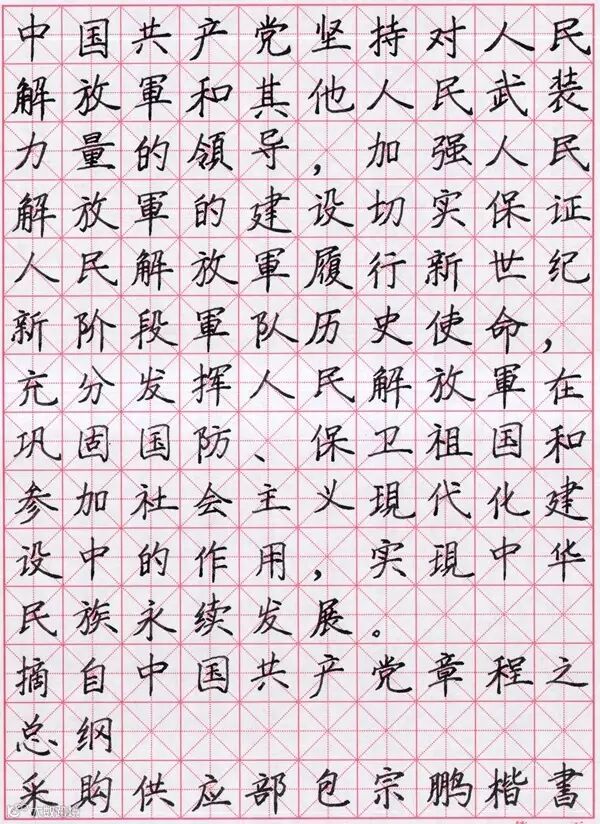 中国共产党坚持对人民
解放軍和其他人民武装
力量的領导，加强人民
解放軍的建设切实保证
人民解放軍履行新世纪
新阶段軍队历史使命，
充分发挥人民解放軍在
巩固国防、保卫祖国和
参加社会主义現代化建
设中的作用，实現中华
民族永续发展。
摘自中国共产党章程之
总纲
采購供应部包宗鹏楷書